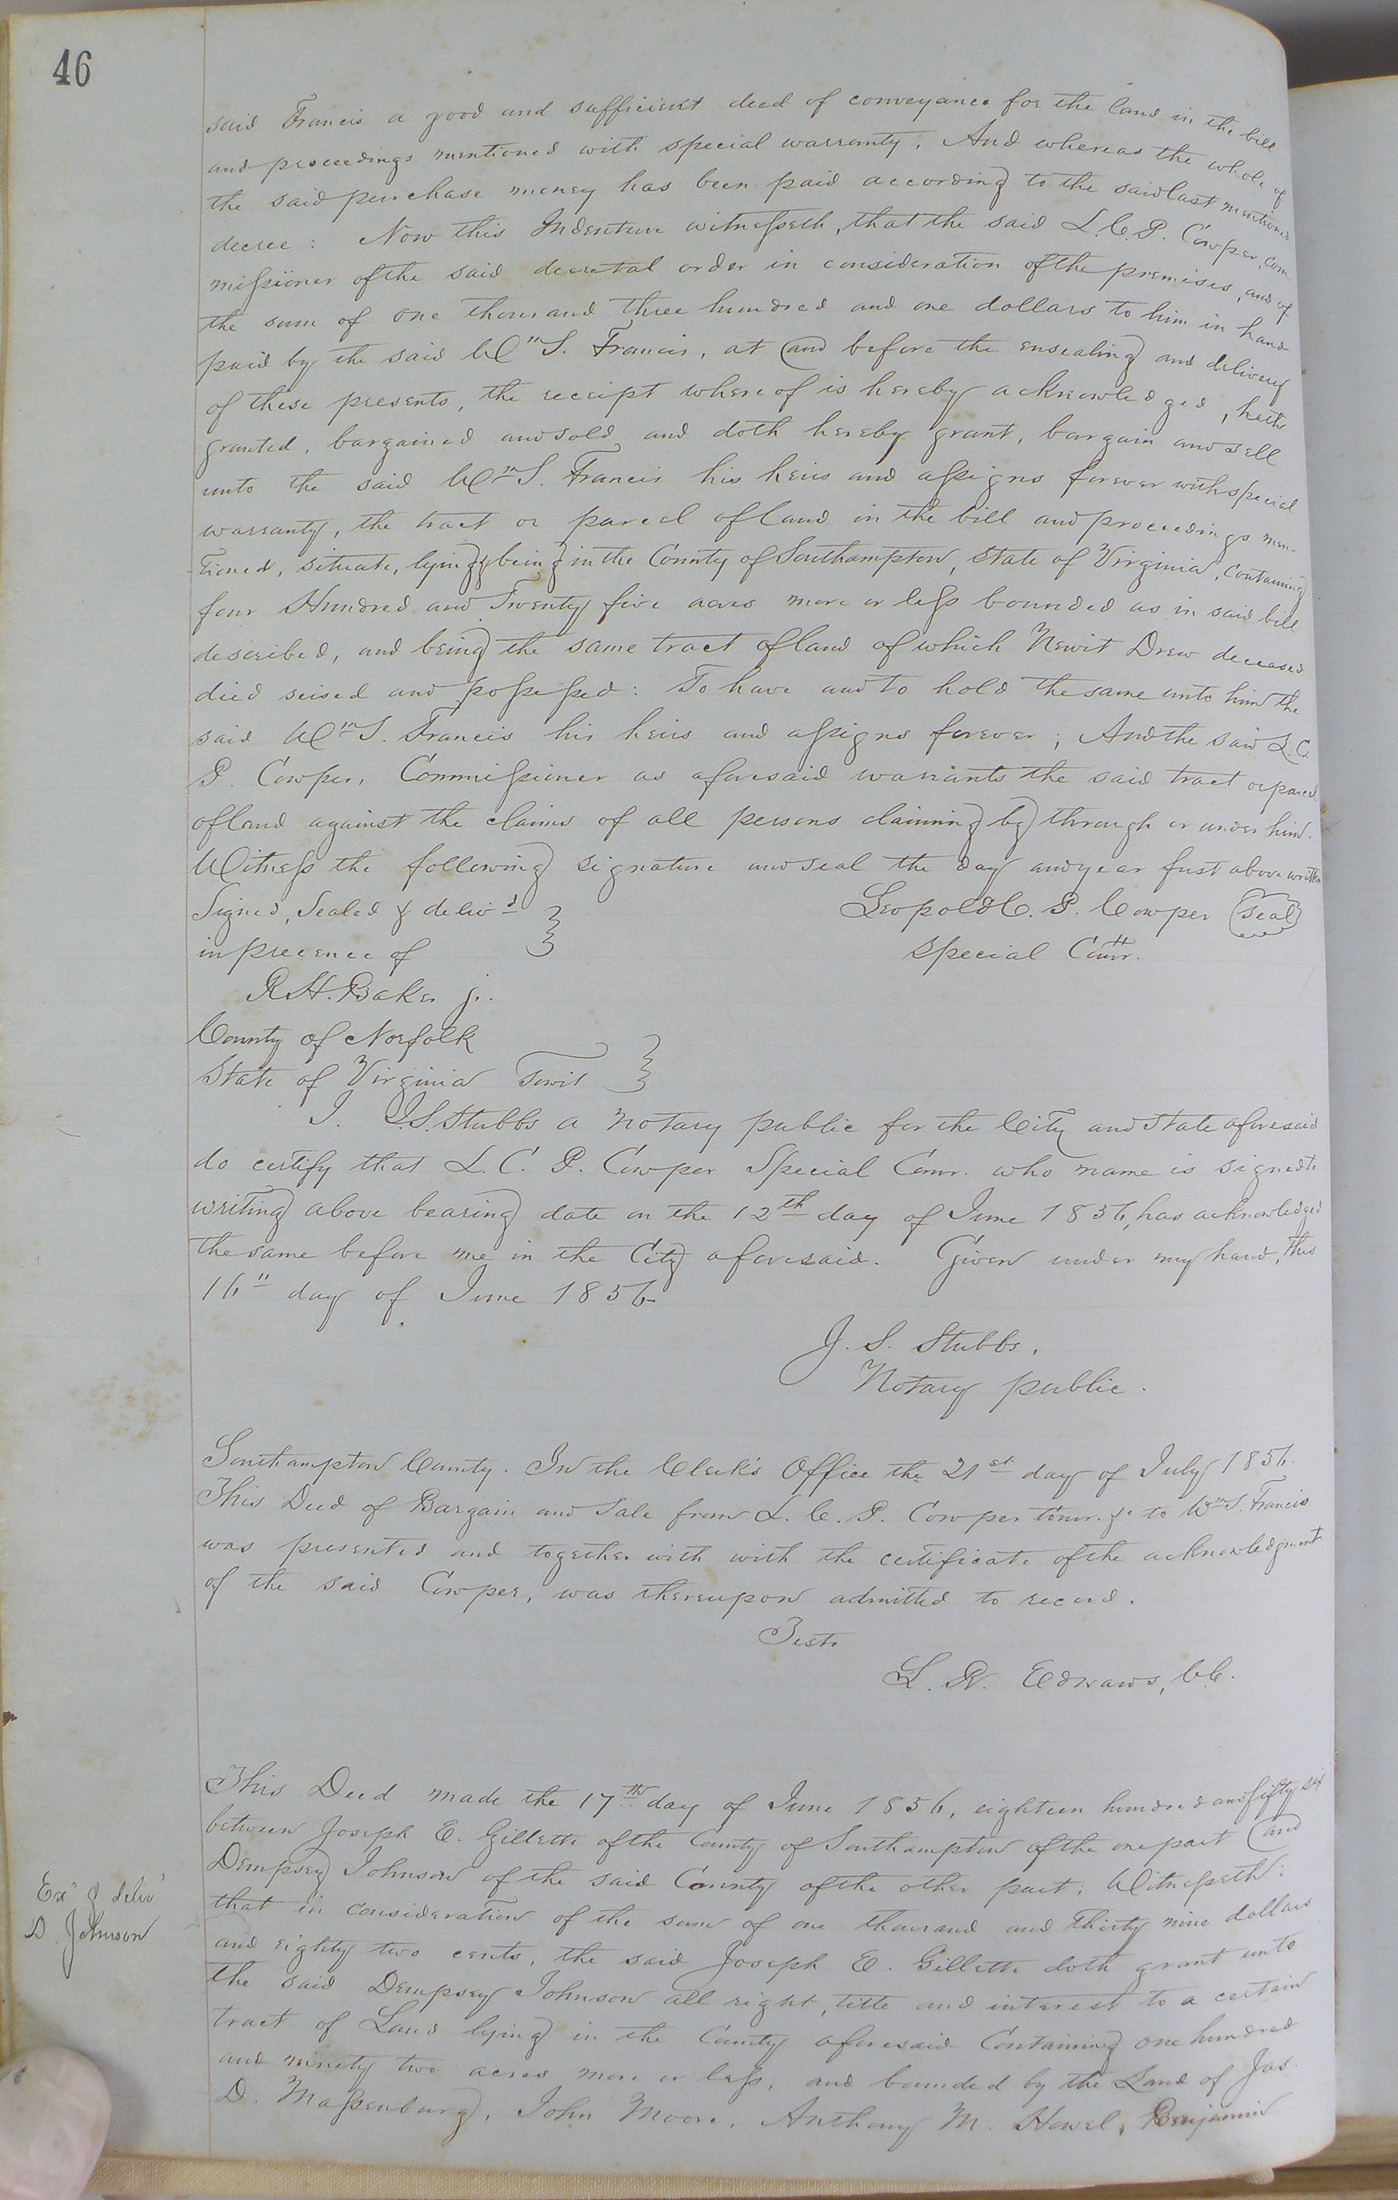 46
said Francis a good and sufficient deed of conveyance for the land in the bill
and proceedings mentioned with special warranty. And whereas the whole of
the said purchase money has been paid according to the said last mentioned
decree: Now this Indenture witnesseth, that the said L. C. P. Cowper, com-
missioner of the said decretal order in consideration of the premises, and of
the sum of one thousand three hundred and one dollars to him in hand
paid by the said Wm S. Francis, at and before the ensealing and delivery
of these presents, the receipt whereof is hereby acknowledged, hath
granted, bargained and sold and doth hereby grant, bargain and sell
unto the said Wm S. Francis his heirs and assigns forever with special
warranty, the tract or parcel of land in the bill and proceedings men-
-tioned, situate, lying & being in the County of Southampton, State of Virginia, containing
four Hundred and Twenty five acres more or less bounded as in said bill
described, and being the same tract of land of which Newit Drew deceased
died seised and possessed: To have and to hold the same unto him the
said Wm S. Francis his heirs and assigns forever; And the said L. C.
P. Cowper, Commissioner as aforesaid warrants the said tract or parcel
of land against the claims of all persons claiming by through or under him.
Witness the following signature and seal the day and year first above written
Signed, Sealed & deliv'd
Leopold C. P. Cowper (Seal)
in precence of
Special Comr.
R. H. Baker jr.
County of Norfolk
State of Virginia Towit
I. J. S. Stubbs a Notary public for the City and State aforesaid
do certify that L. C. P. Cowper Special Comr. who name is signed to
writing above bearing date on the 12th day of June 1856, has acknowledged
the same before me in the City aforesaid. Given under my hand, this
16" day of June 1856
J. S. Stubbs,
Notary public.
Southampton County. In the Clerk's Office the 21st day of July 1856.
This Deed of Bargain and Sale from L. C. P. Cowper Comr. &c to Wm S. Francis
was presented and together with with the certificate of the acknowledgment
of the said Cowper, was thereupon admitted to record.
Teste
L. R. Edwards, C.C.
This Deed made the 17th day of June 1856, eighteen hundred and fifty six
between Joseph E. Gillette of the County of Southampton of the one part and
Dempsey Johnson of the said County of the other part; Witnesseth:
that in consideration of the sum of one thousand and thirty nine dollars
and eighty two cents, the said Joseph E. Gillette doth grant unto
Exd & deliv'd
D. Johnson
the said Dempsey Johnson all right, title and interest to a certain
tract of Land lying in the County aforesaid Containing one hundred
and ninety two acres more or less, and bounded by the Land of Jas.
D. Massenburg, John Moore, Anthony M. Howel, Benjamin